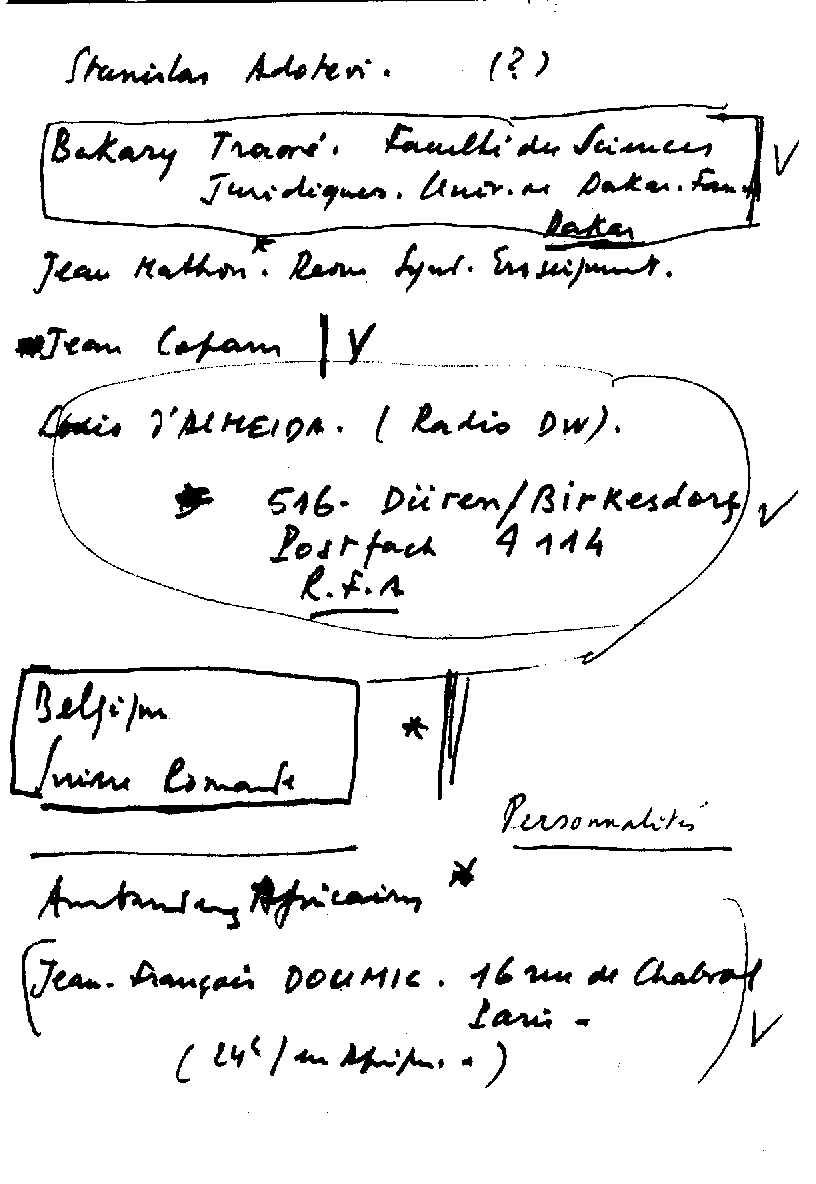 Stanislas Adotevi. (?)
Bakary Traoré. Faculté des Sciences
Juridiques. Univ. de Dakar. Fann
Dakar
Jean Mathon *. Synd. Enseignant.
* Jean Copans | V
Louis d'ALMEIDA. (Radio DW).
* 516- Düren/Birkesdorf V
Postfach 4114
R.F.A
Belgique
Suisse Romande
*
Personnalités
Ambassades Africaines *
Jean-François DOUMIC. 16 rue de Chabrol
Paris -
(24h/ en Afrique. -)